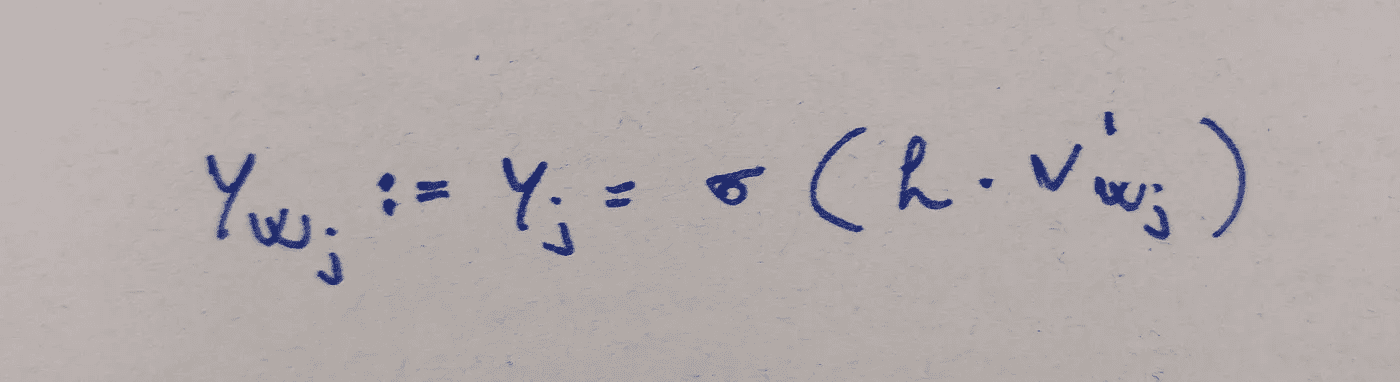 Y_{w_j} := Y_j = σ (h · V'_{w_j})